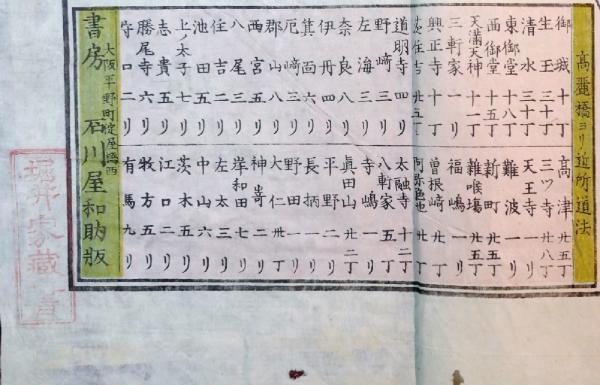 高麗橋ヨリ近所道法
御城 十丁
生玉 三十丁
清水 三十丁
東御堂 十八丁
西御堂 十五丁
天満天神 十一丁
三軒家 一リ
興正寺 十丁
茨住吉 廿五丁
道明寺 四リ
野崎 三リ
左海 三リ
奈良 八リ
伊丹 四リ
箕面 六リ
尼崎 三リ
郡山 八リ
西宮 五リ
八尾 三リ
住吉 二リ
池田 五リ
上太子 七リ
志貴 七リ
勝尾寺 六リ
守口 二リ
高津 廿五丁
三ツ寺 廿八丁
天王寺 一リ
難波 一リ
新町 廿五丁
雑喉場 廿五丁
福嶋 一リ
曽根崎 廿丁
阿弥陀池 廿丁
太融寺 十二丁
八軒家 五丁
寺嶋 一リ
眞田山 廿二丁
平野 二リ
長柄 一リ
野田 一リ
大仁 廿丁
神崎 二リ
岸和田 七リ
左太 三リ
中山 六リ
茨木 五リ
江口 二リ
牧方 五リ
有馬 九リ
書房 大阪平野町淀屋橋西 石川屋和助版
家藏